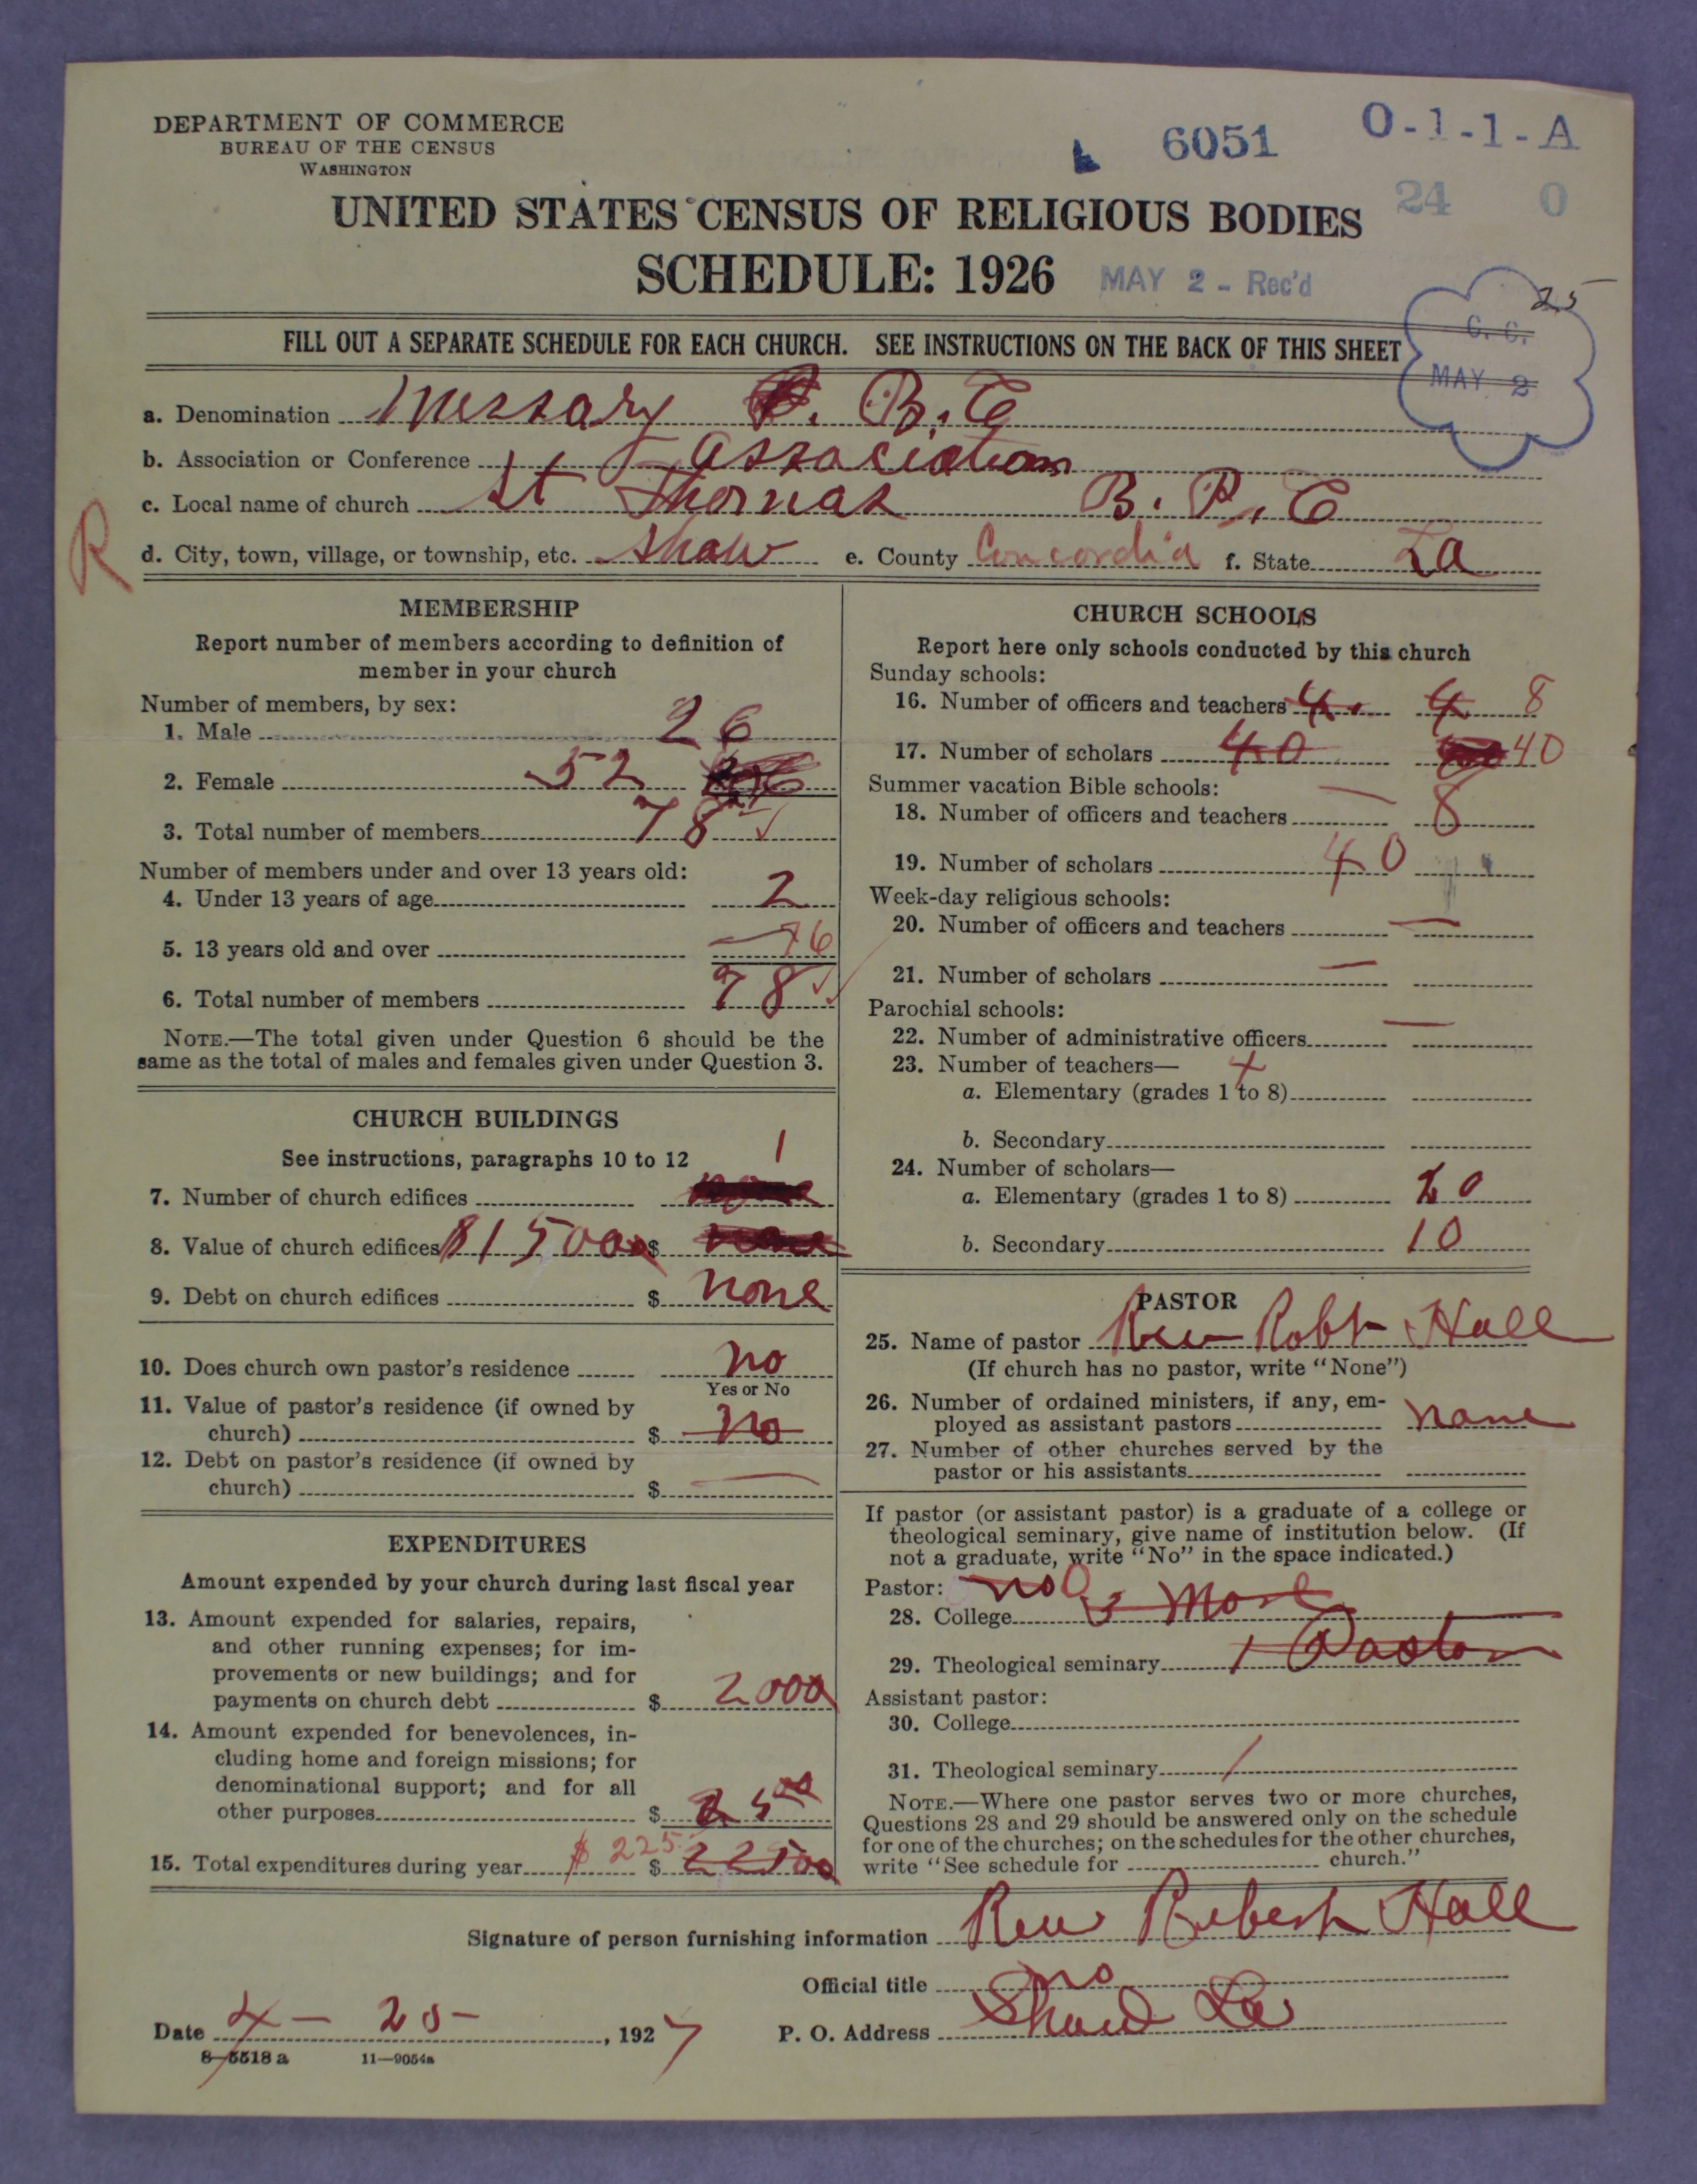 DEPARTMENT OF COMMERCE
BUREAU OF THE CENSUS
WASHINGTON
6051 O-1-1-A
24 0
UNITED STATES CENSUS OF RELIGIOUS BODIES
SCHEDULE: 1926 MAY 2 - Rec'd
25
C. C.
MAY 2
FILL OUT A SEPARATE SCHEDULE FOR EACH CHURCH. SEE INSTRUCTIONS ON THE BACK OF THIS SHEET
a. Denomination B. E
b. Association or Conference Association
c. Local name of church St Thomas B. P. E
R
d. City, town, village, or township, etc. Shaw e. County Concordia f. State La
MEMBERSHIP
Report number of members according to definition of
member in your church
Number of members, by sex:
1. Male 26
2. Female 52
3. Total number of members 78
Number of members under and over 13 years old:
4. Under 13 years of age 2
5. 13 years old and over 76
6. Total number of members 78
NOTE.—The total given under Question 6 should be the
same as the total of males and females given under Question 3.
CHURCH BUILDINGS
See instructions, paragraphs 10 to 12
1
7. Number of church edifices none
8. Value of church edifices $ none
9. Debt on church edifices $ none
10. Does church own pastor's residence no
Yes or No
11. Value of pastor's residence (if owned by
church) $ no
12. Debt on pastor's residence (if owned by
church) $ —
EXPENDITURES
Amount expended by your church during last fiscal year
13. Amount expended for salaries, repairs,
and other running expenses; for im-
provements or new buildings; and for
payments on church debt $ 2000
14. Amount expended for benevolences, in-
cluding home and foreign missions; for
denominational support; and for all
other purposes $ 25 00
15. Total expenditures during year $ 225 $ 22500
CHURCH SCHOOLS
Report here only schools conducted by this church
Sunday schools:
16. Number of officers and teachers 4 4 8
17. Number of scholars 40 40
Summer vacation Bible schools:
18. Number of officers and teachers — 8
19. Number of scholars 40
Week-day religious schools:
20. Number of officers and teachers —
21. Number of scholars —
Parochial schools:
22. Number of administrative officers —
23. Number of teachers— 4
a. Elementary (grades 1 to 8)
b. Secondary
24. Number of scholars—
a. Elementary (grades 1 to 8) 20
b. Secondary 10
PASTOR
25. Name of pastor Rev Robt Hall
(If church has no pastor, write "None")
26. Number of ordained ministers, if any, em-
ployed as assistant pastors none
27. Number of other churches served by the
pastor or his assistants
If pastor (or assistant pastor) is a graduate of a college or
theological seminary, give name of institution below. (If
not a graduate, write "No" in the space indicated.)
Pastor: no
28. College 3 More
29. Theological seminary 1 Pastor
Assistant pastor:
30. College
31. Theological seminary
NOTE.—Where one pastor serves two or more churches,
Questions 28 and 29 should be answered only on the schedule
for one of the churches; on the schedules for the other churches,
write "See schedule for church."
Signature of person furnishing information Rev Robert Hall
Official title no
Date 4 - 25 - , 1927 P. O. Address Shaw La
8-5518 a 11-9054a